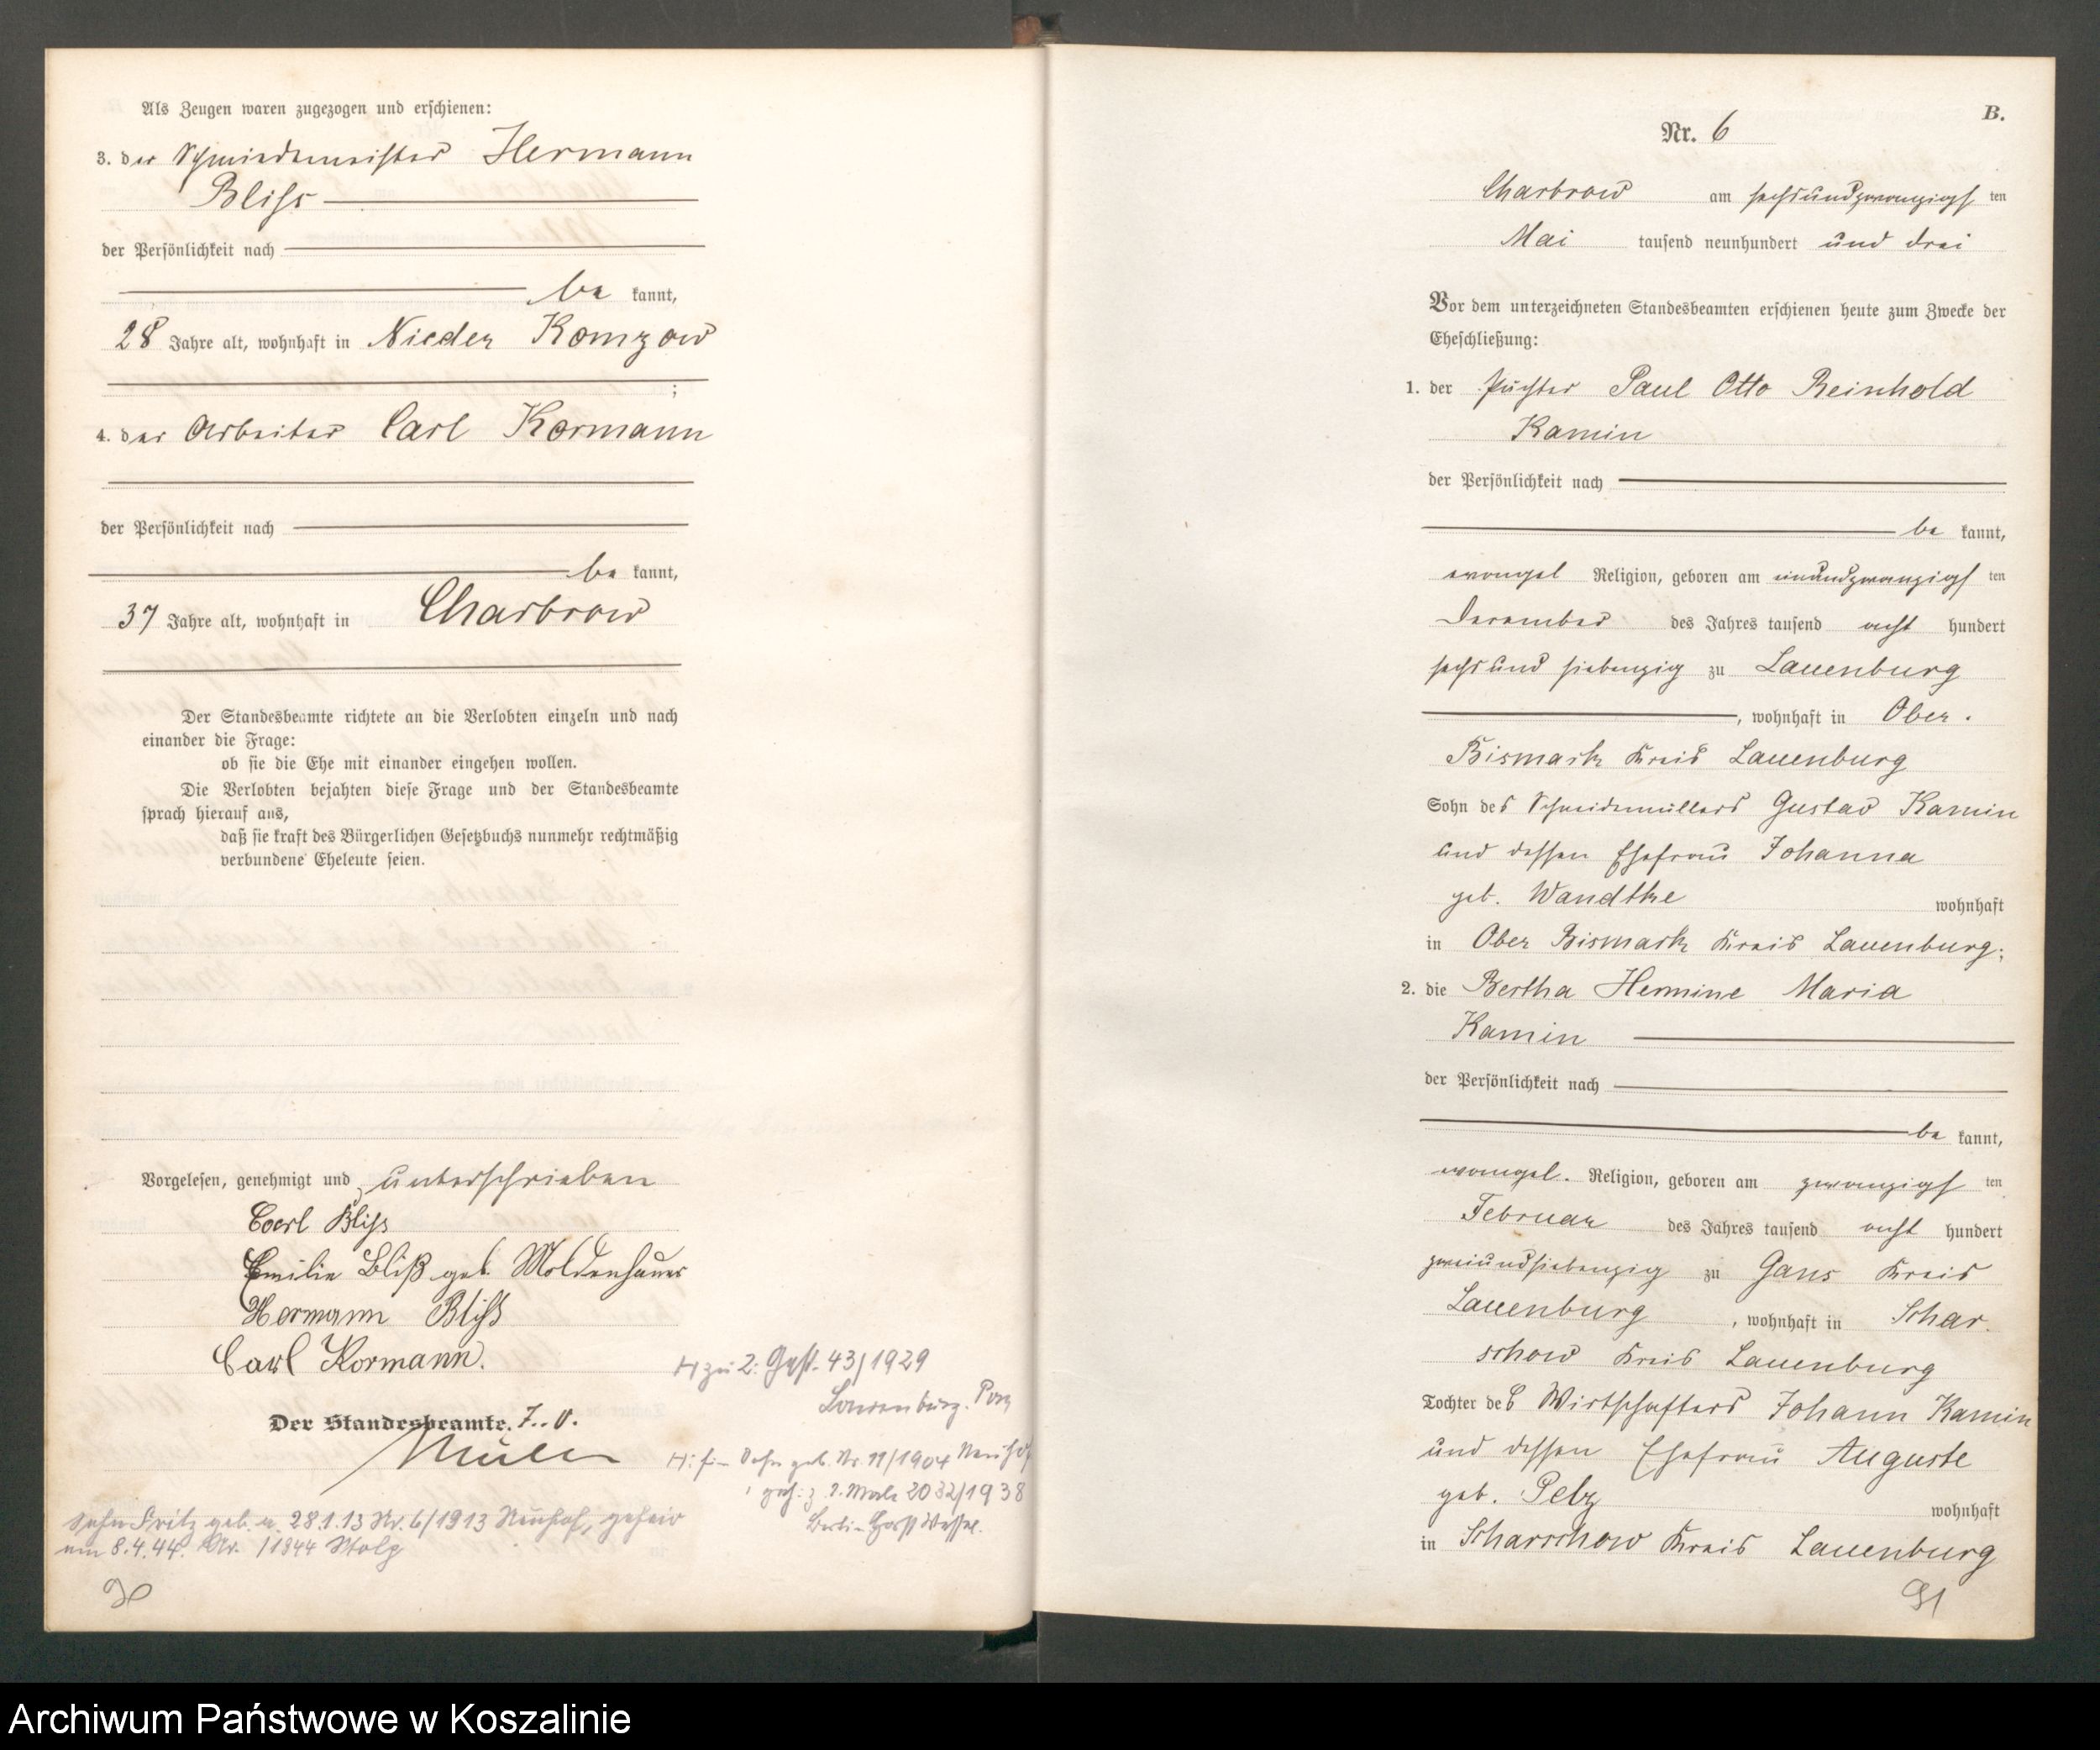 Als Zeugen waren zugezogen und erschienen:
3. der Schmiedemeister Hermann
Bliss
der Persönlichkeit nach
be kannt,
28 Jahre alt, wohnhaft in Nieder Komzow
;
4. der Arbeiter Carl Kormann
der Persönlichkeit nach
be kannt,
37 Jahre alt, wohnhaft in Charbrow
Der Standesbeamte richtete an die Verlobten einzeln und nach
einander die Frage:
ob sie die Ehe mit einander eingehen wollen.
Die Verlobten bejahten diese Frage und der Standesbeamte
sprach hierauf aus,
daß sie kraft des Bürgerlichen Gesetzbuchs nunmehr rechtmäßig
verbundene Eheleute seien.
Vorgelesen, genehmigt und unterschrieben
Carl Bliss
Emilie Bliß geb. Moldenhauer
Hermann Bliss
Carl Kormann.
Der Standesbeamte. I. V.
Müller
H zu 2: Gest. 43/1929
Lauenburg. Pom
H: Sohn geb. Nr. 11/1904 Neuhof
2. Male 2032/1938
Berlin Horst Wessel.
Sohn Fritz geb. a. 28.1.13 Nr. 6/1913 Neuhof, geheir
am 8.4.44. Nr. 1944 Stolp
90
B.
Nr. 6
Charbrow am sechsundzwanzigs ten
Mai tausend neunhundert und drei
Vor dem unterzeichneten Standesbeamten erschienen heute zum Zwecke der
Eheschließung:
1. der Pächter Paul Otto Reinhold
Kamin
der Persönlichkeit nach
be kannt,
evangel Religion, geboren am einundzwanzigs ten
Dezember des Jahres tausend acht hundert
sechs und siebenzig zu Lauenburg
, wohnhaft in Ober-
Bismark Kreis Lauenburg
Sohn des Schneidemüllers Gustav Kamin
und dessen Ehefrau Johanna
geb. Wandtke wohnhaft
in Ober Bismark Kreis Lauenburg;
2. die Bertha Hermine Maria
Kamin
der Persönlichkeit nach
be kannt,
evangel. Religion, geboren am zwanzigs ten
Februar des Jahres tausend acht hundert
zweiundsiebenzig zu Gans Kreis
Lauenburg, wohnhaft in Schar-
schow Kreis Lauenburg
Tochter des Wirtschafters Johann Kamin
und dessen Ehefrau Auguste
geb. Pelz wohnhaft
in Scharschow Kreis Lauenburg
91
Archiwum Państwowe w Koszalinie